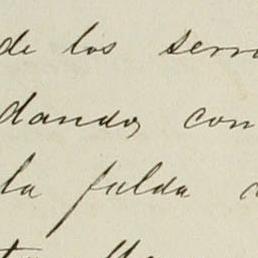 de los
dando, con
la falda